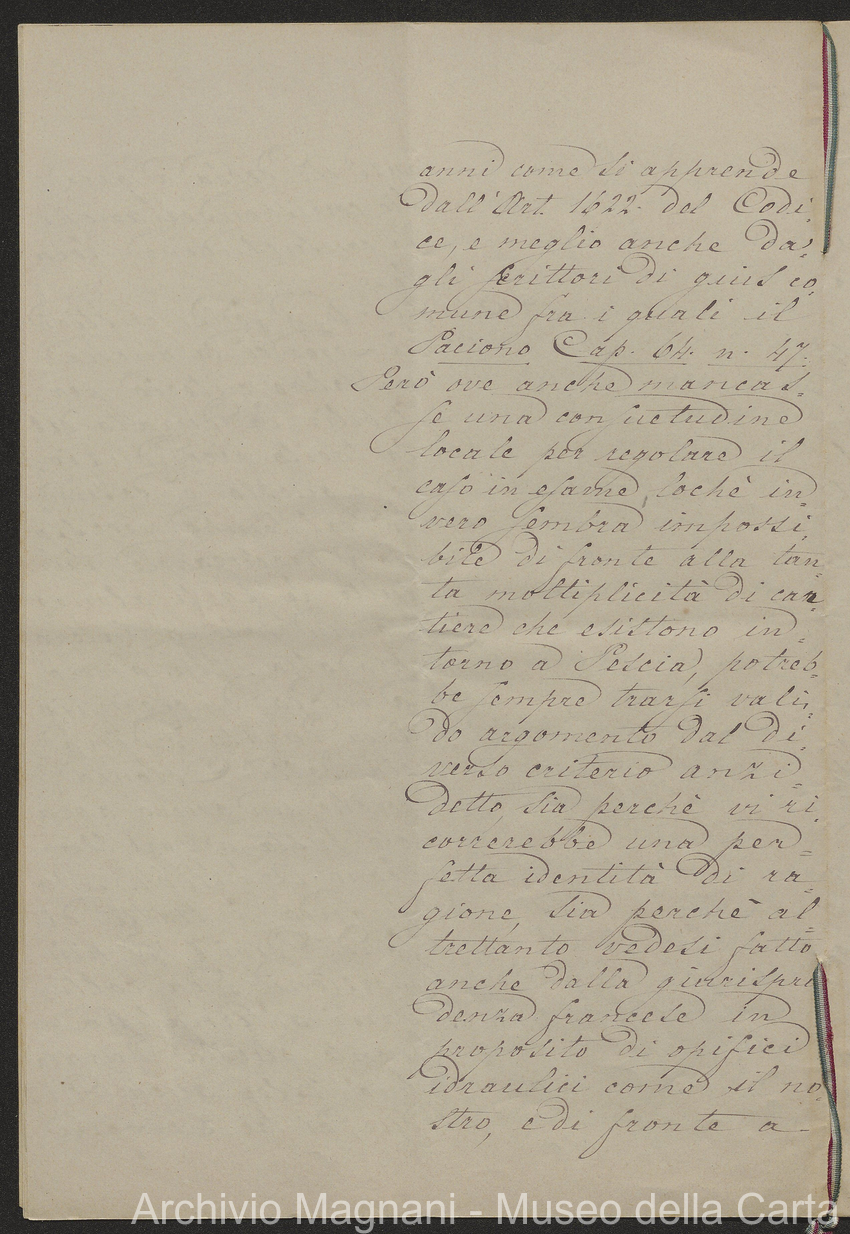 anni come si apprende
dall'Art. 1622. del Codi=
ce, e meglio anche da=
gli scrittori di gius co=
mune fra i quali il
Paciono Cap. 64. n. 47.
Però ove anche mancas=
se una consuetudine
locale per regolare il
caso in esame, lochè in=
vero sembra impossi=
bile di fronte alla tan=
ta moltiplicità di car=
tiere che esistono in=
torno a Pescia, potreb=
be sempre trarsi vali=
do argomento dal di=
verso criterio anzi=
detto, sia perchè vi ri=
correrebbe una per=
fetta identità di ra=
gione, sia perchè al=
trettanto vedesi fatto
anche dalla giurispru
denza francese in
proposito di opifici
idraulici come il no=
stro, e di fronte a
Archivio Magnani - Museo della Carta